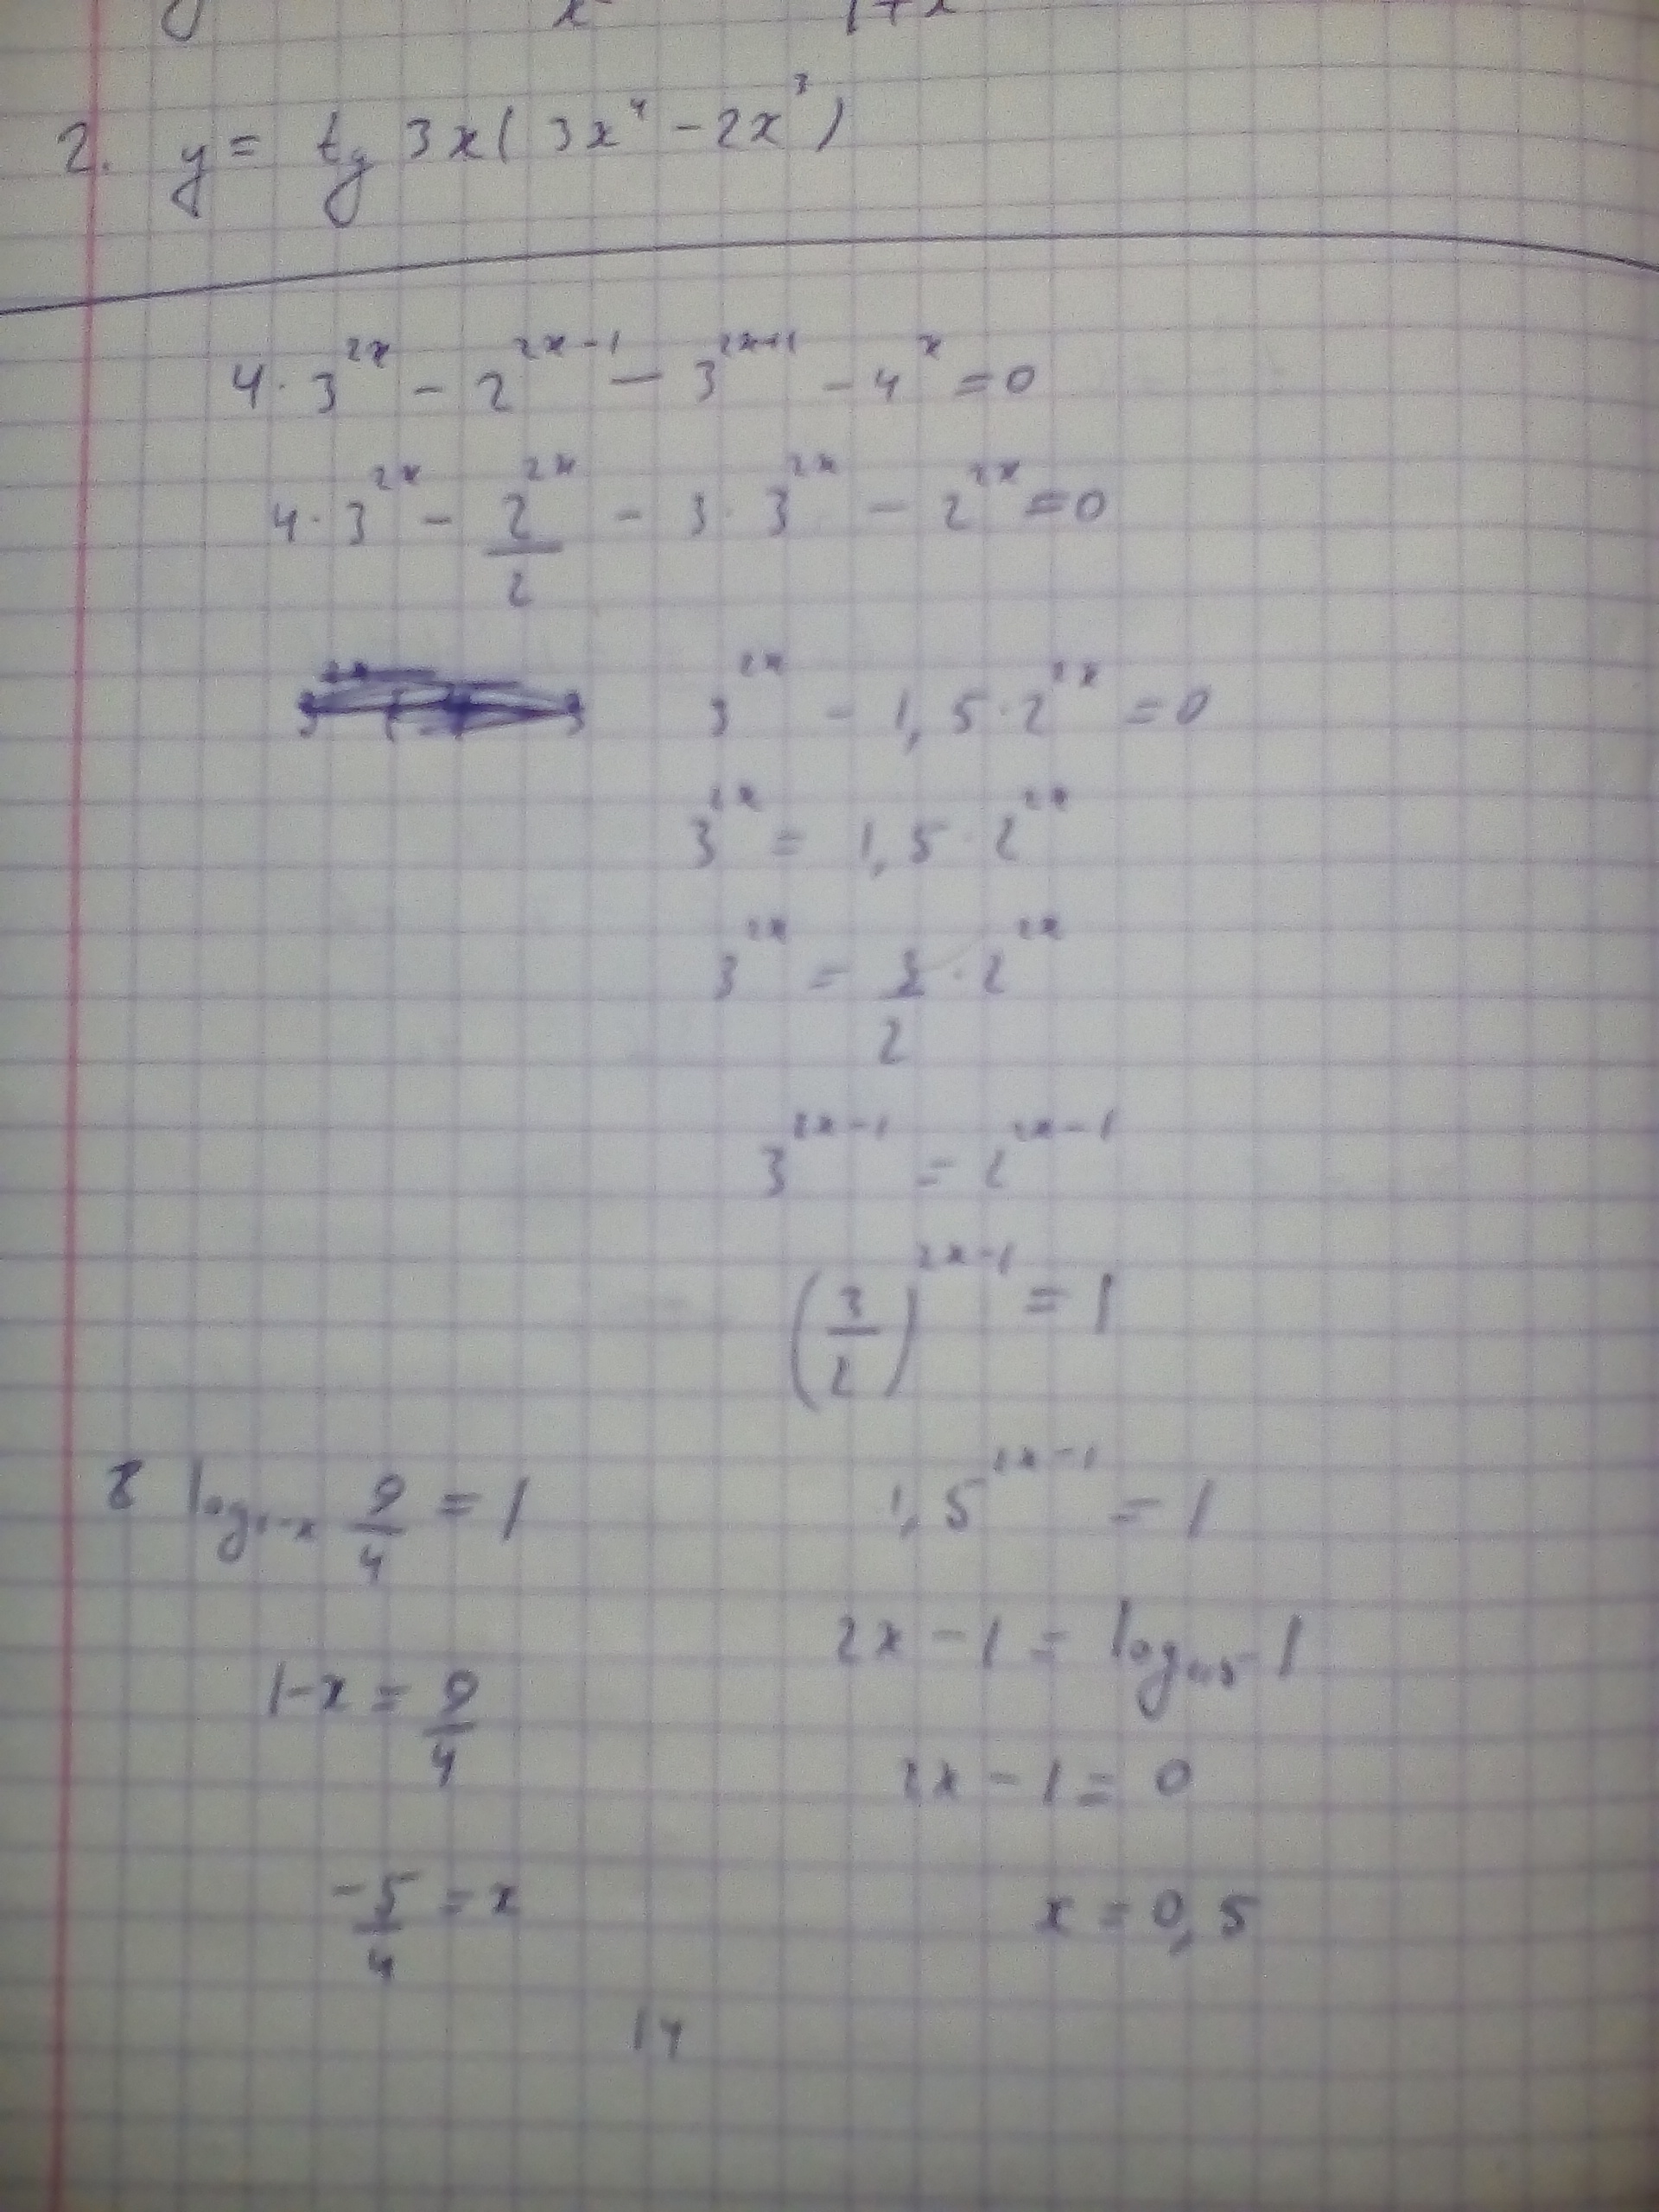 2. y = tg 3x(3x⁴ - 2x³)
4·3^(2x) - 2^(2x-1) - 3^(2x+1) - 4^x = 0
4·3^(2x) - 2^(2x)/2 - 3·3^(2x) - 2^(2x) = 0
3^(2x) - 1,5·2^(2x) = 0
3^(2x) = 1,5·2^(2x)
3^(2x) = 3/2·2^(2x)
3^(2x-1) = 2^(2x-1)
(3/2)^(2x-1) = 1
1,5^(2x-1) = 1
2x - 1 = log_(1,5) 1
2x - 1 = 0
x = 0,5
8 log_(1-x) 9/4 = 1
1-x = 9/4
-5/4 = x
14